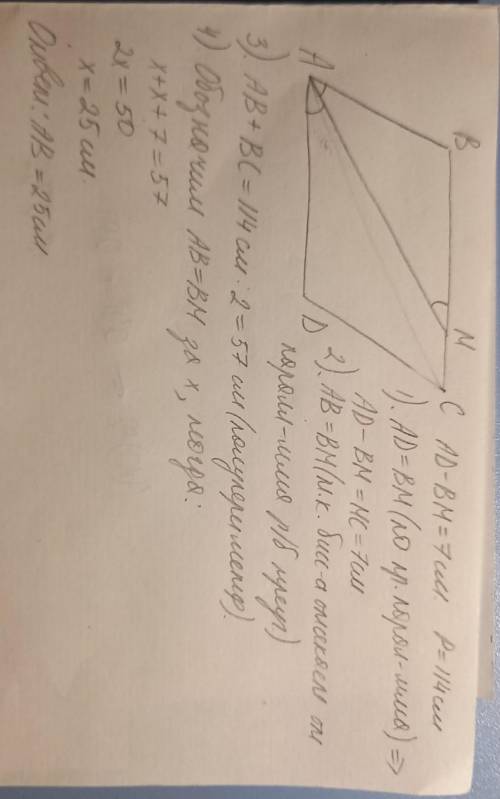 B M C
A D
AD-BM=7см. P=114см
1). AD=BM(по пр. парал-мма) =>
AD-BM=MC=7см
2). AB=BM(т.к. бисс-а отсекает от
парал-мма р/б треуг)
3). AB+BC=114см:2=57см(полупериметр).
4) Обозначим AB=BM за x, тогда:
x+x+7=57
2x=50
x=25см.
Ответ: AB=25см